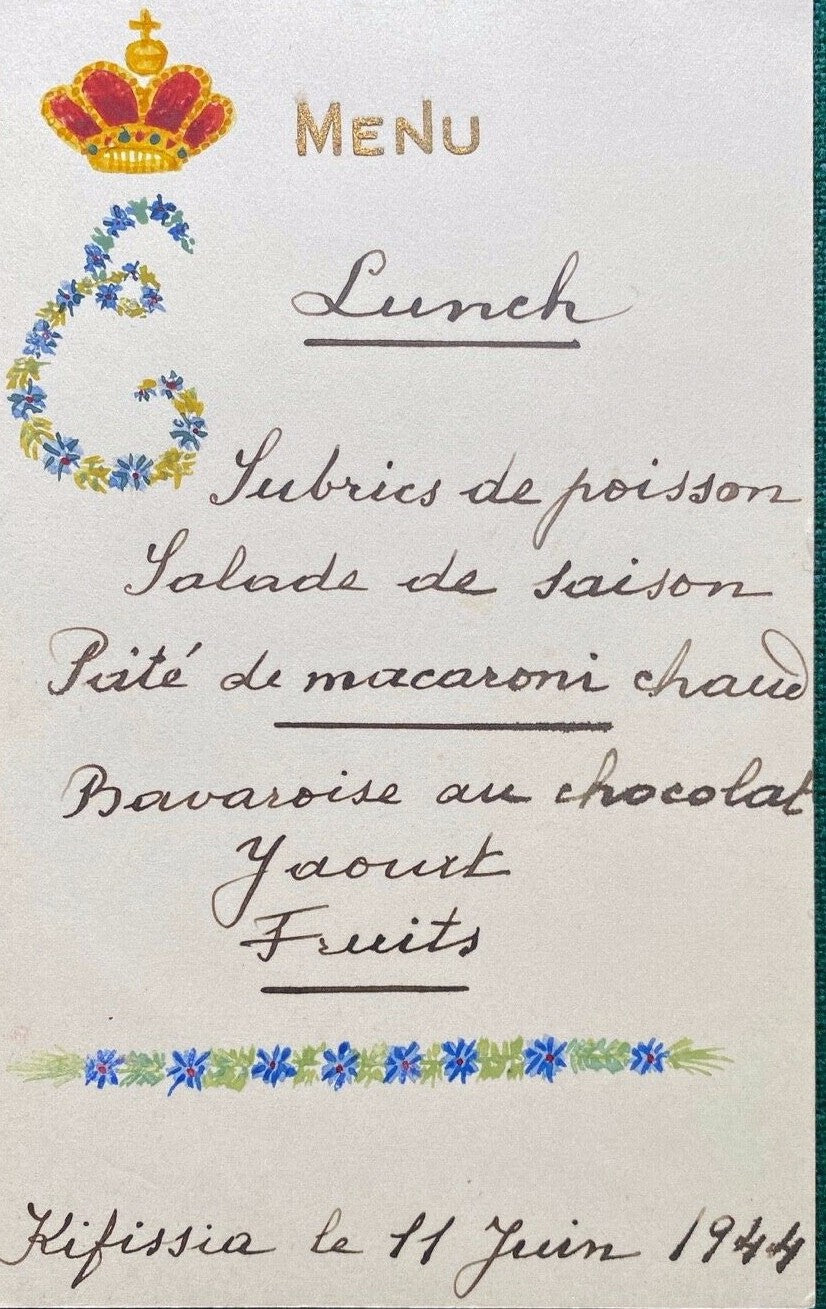 MENU
Lunch
Subrics de poisson
Salade de saison
Pâté de macaroni chaud
Bavaroise au chocolat
Yaourt
Fruits
Kifissia le 11 Juin 1944